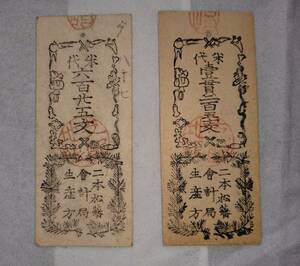 米代
壹貫二百五十文
二本松藩
會計局
生産方
米代
六百廿五文
二本松藩
會計局
生産方